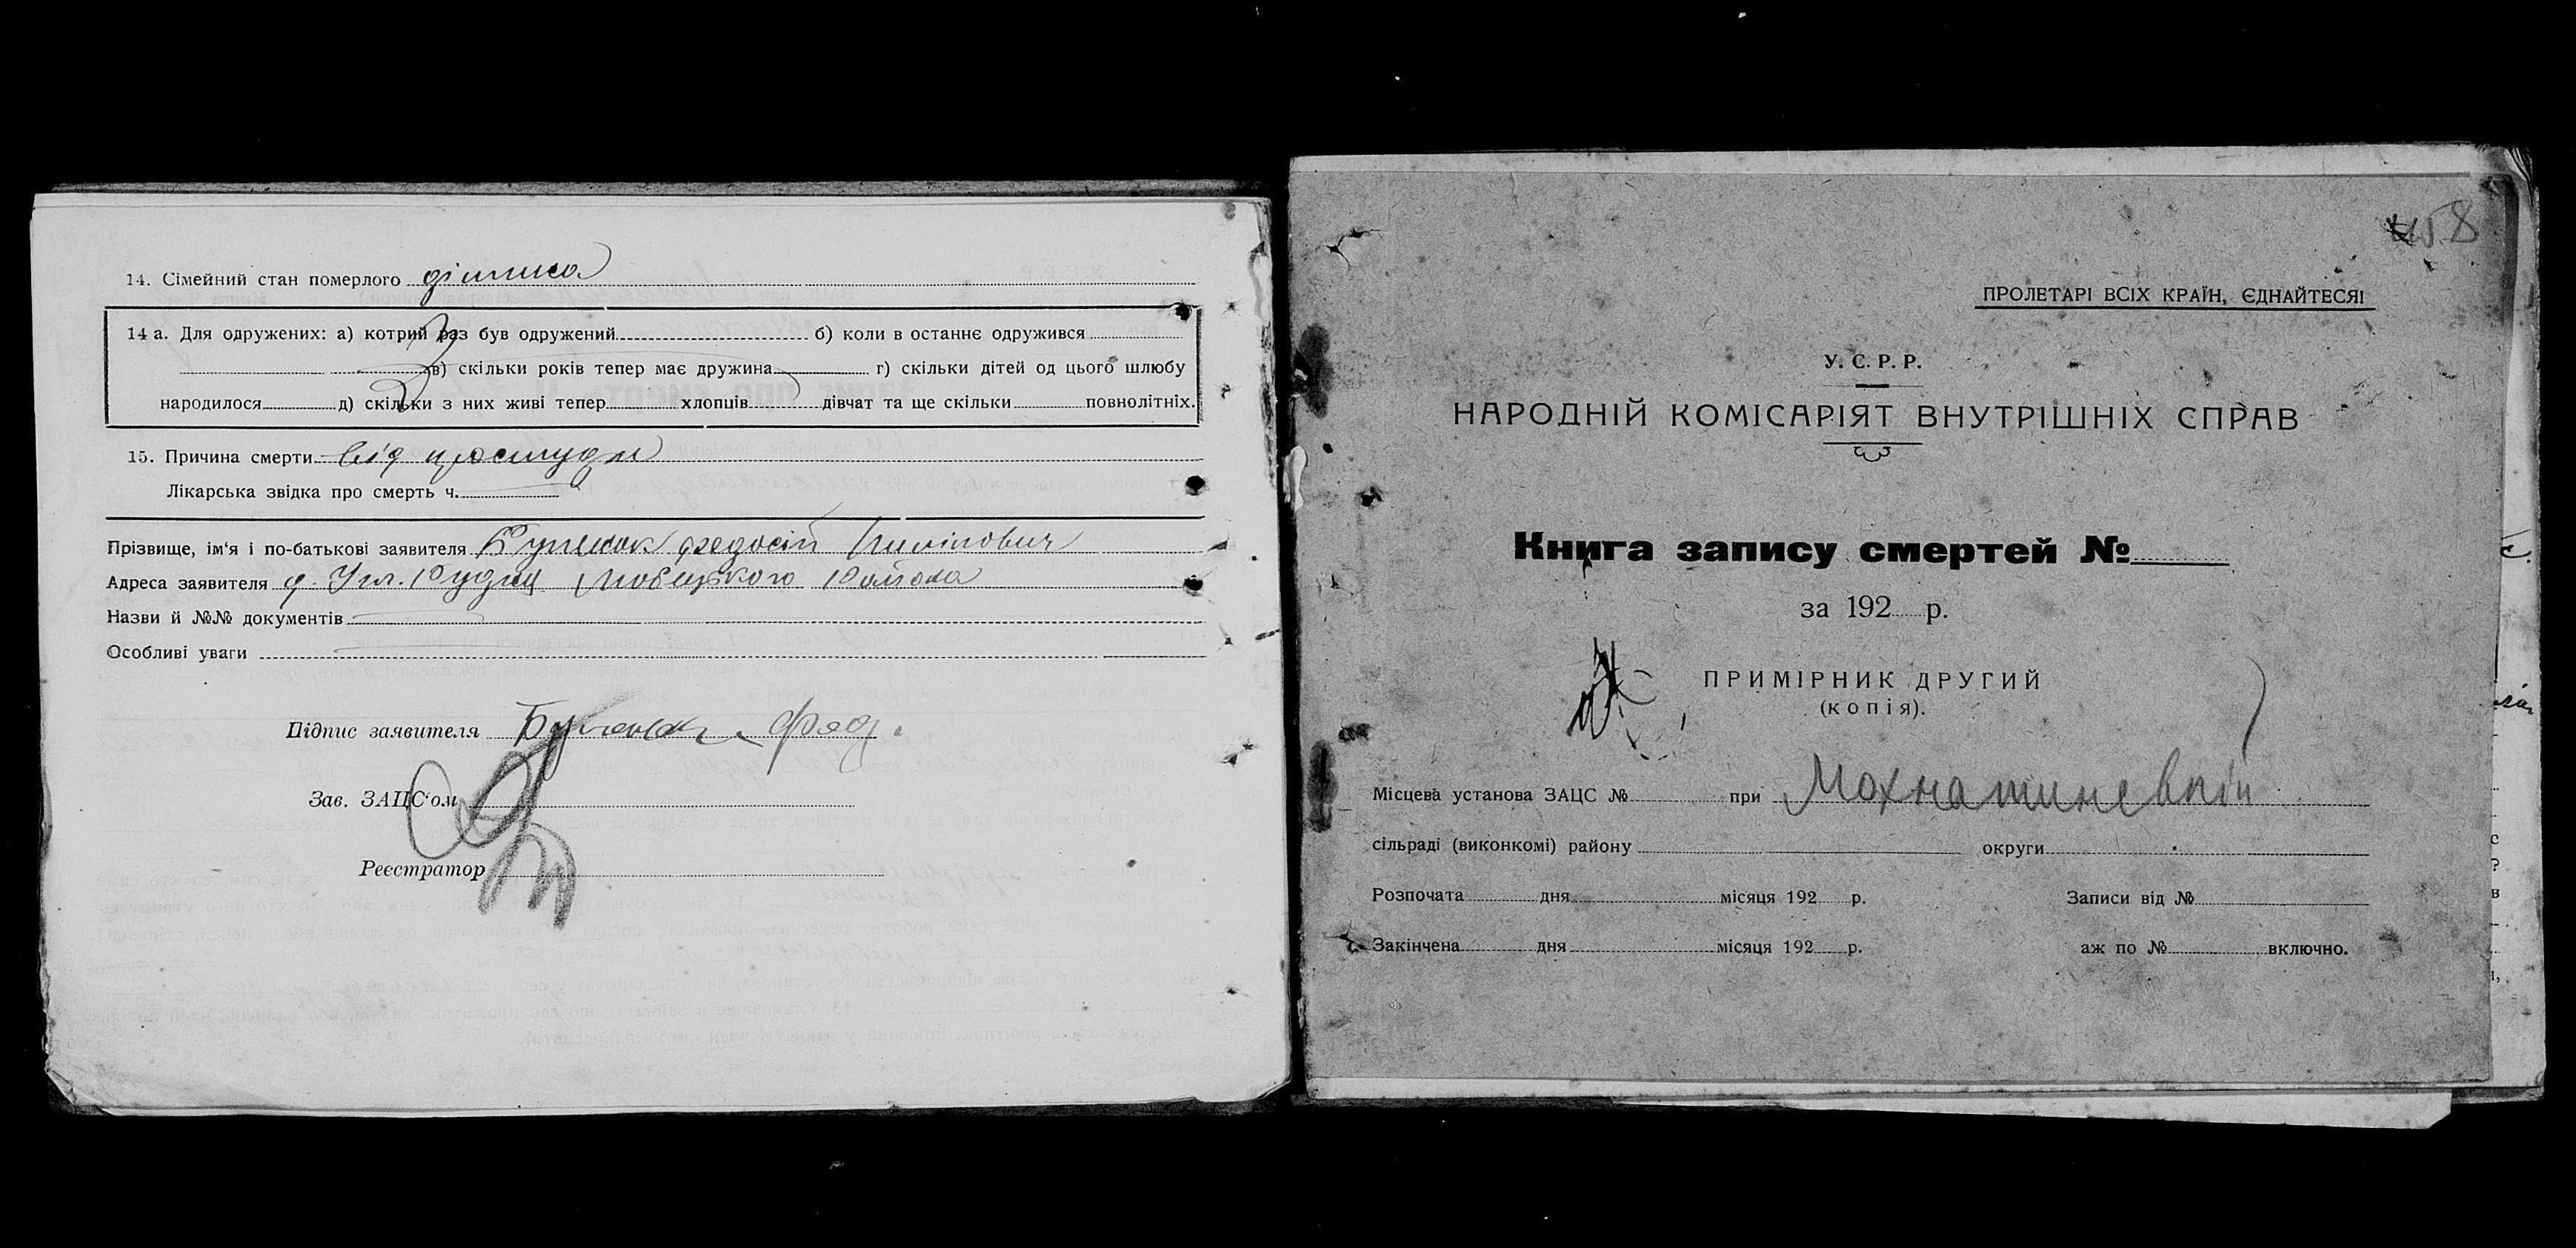 14. Сімейний стан померлого дитина
14 а. Для одружених: а) котрий раз був одружений б) коли в останнє одружився
в) скільки років тепер має дружина г) скільки дітей од цього шлюбу
народилося д) скільки з них живі тепер хлопців дівчат та ще скільки повнолітніх.
15. Причина смерти від простуди
Лікарська звідка про смерть ч.
Прізвище, ім‘я і по-батькові заявителя Федосій Пилипович
Адреса заявителя Рудня Любецького Району
Назви й №№ документів
Особливі уваги
Підпис заявителя Фед.
Зав. ЗАЦС‘ом
Реєстратор
58
ПРОЛЕТАРІ ВСІХ КРАЇН, ЄДНАЙТЕСЯ!
У. С. Р. Р.
НАРОДНІЙ КОМІСАРІЯТ ВНУТРІШНІХ СПРАВ
Книга запису смертей №
за 192 р.
ПРИМІРНИК ДРУГИЙ
(копія).
Місцева установа ЗАЦС № при Мохнатиневкій
сільраді (виконкомі) району округи
Розпочата дня місяця 192 р. Записи від №
Закінчена дня місяця 192 р. аж по № включно.